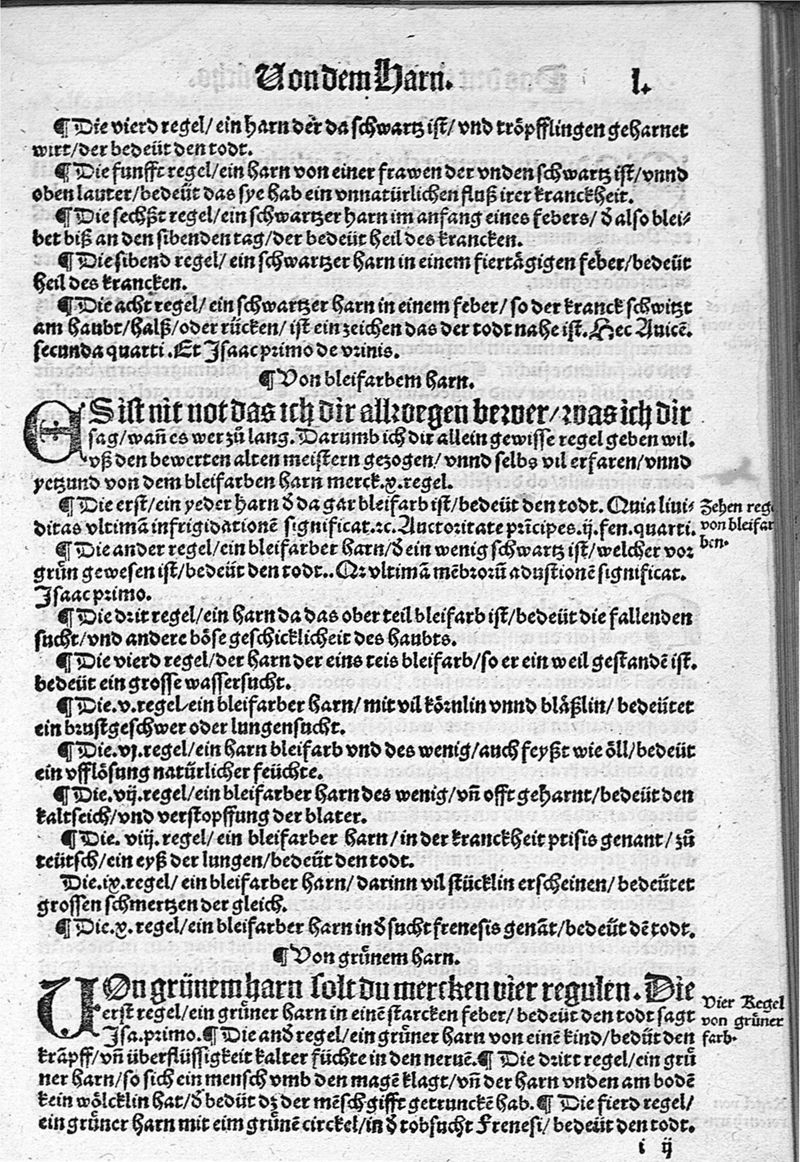 Von dem Harn. l.
¶ Die vierd regel/ ein harn der da schwartz ist/ vnd tröpfflingen geharnet
wirt/der bedeüt den todt.
¶ Die funfft regel/ ein harn von einer frawen der vnden schwartz ist/ vnnd
oben lauter/bedeüt das sye hab ein vnnatürlichen fluß irer kranckheit.
¶ Die sechßt regel/ein schwartzer harn im anfang eines febers/ đ also blei⸗
bet biß an den sibenden tag/der bedeüt heil des krancken.
¶ Die sibend regel/ ein schwartzer harn in einem fiertägigen feber/bedeüt
heil des krancken.
¶ Die acht regel/ ein schwartzer harn in einem feber/ so der kranck schwitzt
am haubt/halß/oder rücken/ ist ein zeichen das der todt nahe ist. Hec Auicē.
secunda quarti. Et Isaac primo de vrinis.
¶ Von bleifarbem harn.
ES ist nit not das ich dir allwegen bewer/was ich dir
sag/wañ es wer zů lang. Darumb ich dir allein gewisse regel geben wil.
vß den bewerten alten meistern gezogen/ vnnd selbs vil erfaren/vnnd
yetzund von dem bleifarben harn merck.x.regel.
¶ Die erst/ein yeder harn đ da gar bleifarb ist/bedeüt den todt. Quia liui⸗
ditas vltimā infrigidationē significat.⁊c. Auctoritate prīcipes.ij.fen.quarti.
Zehen rege
von bleifar
ben.
¶ Die ander regel/ein bleifarber harn/đ ein wenig schwartz ist/welcher vor
grün gewesen ist/bedeüt den todt.. Qr vltimā mēbrorū adustionē significat.
Isaac primo.
¶ Die drit regel/ein harn da das ober teil bleifarb ist/bedeüt die fallenden
sucht/vnd andere böse geschicklicheit des haubts.
¶ Die vierd regel/der harn der eins teis bleifarb/so er ein weil gestandē ist.
bedeüt ein grosse wassersucht.
¶ Die.v.regel/ein bleifarber harn/ mit vil körnlin vnnd bläßlin/ bedeütet
ein brustgeschwer oder lungensucht.
¶ Die.vj.regel/ein harn bleifarb vnd des wenig/auch feyßt wie öll/bedeüt
ein vfflösung natürlicher feüchte.
¶ Die.vij.regel/ein bleifarber harn des wenig/ vñ offt geharnt/bedeüt den
kaltseich/vnd verstopffung der blater.
¶ Die. viij. regel/ ein bleifarber harn/ in der kranckheit ptisis genant/ zů
teütsch/ein eyß der lungen/bedeüt den todt.
Die.ix.regel/ ein bleifarber harn/ darinn vil stücklin erscheinen/ bedeütet
grossen schmertzen der gleich.
¶ Die.x.regel/ein bleifarber harn in đ sucht frenesis genāt/bedeüt dē todt.
¶ Von grünem harn.
VOn grünem harn solt du mercken vier regulen. Die
erst regel/ ein grüner harn in einē starcken feber/ bedeüt den todt sagt
Isa.primo.¶ Die and regel/ein grüner harn von einē kind/bedüt den
Vier Regel
von grüner
farb.
kräpff/ vñ überflüssigkeit kalter füchte in den neruē.¶ Die dritt regel/ein grü
ner harn/so sich ein mensch vmb den magē klagt/vñ der harn vnden am bodē
kein wölcklin hat/đ bedüt dz der mēsch gifft getrunckē hab.¶ Die fierd regel/
ein grüner harn mit eim grünē circkel/in đ tobsucht Frenesi/bedeüt den todt.
i ij